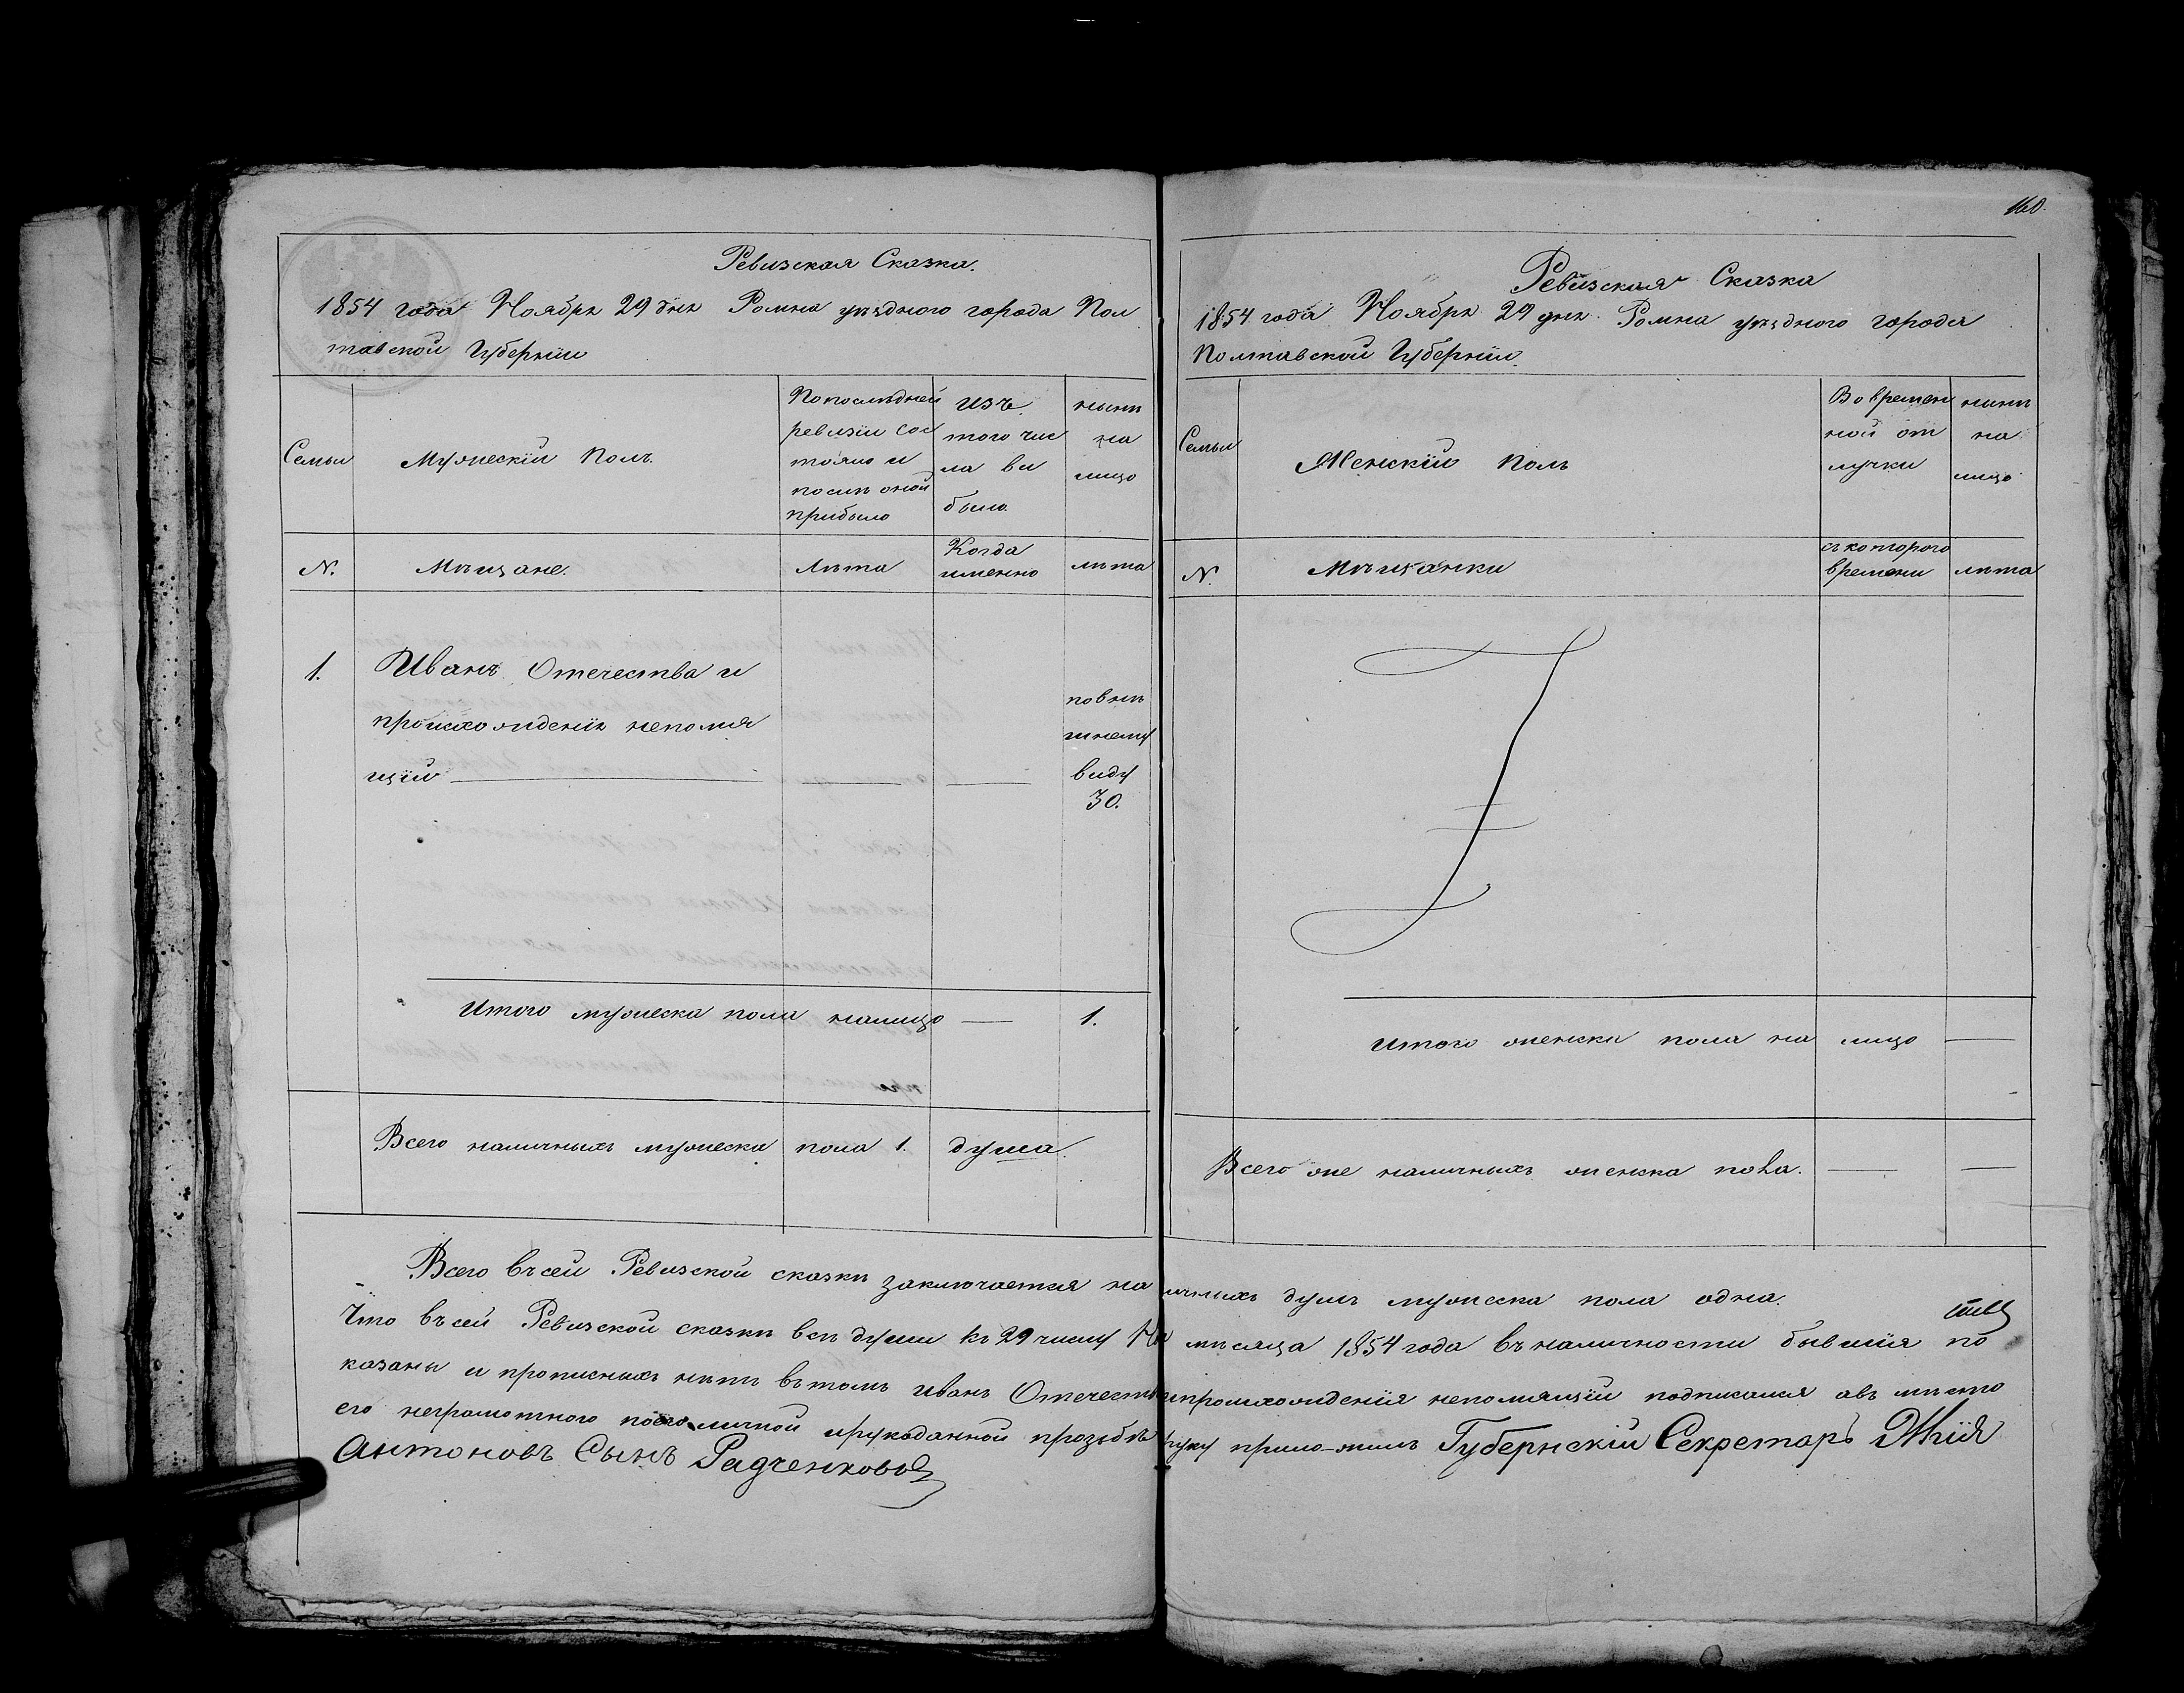 160.
Ревизская Сказка.
1854 года Ноября 29 дня Ромна уѣзднаго города Пол
тавской Губерніи
Семьи
Мужескій Полъ.
По послѣдней
ревизіи сос
тояло и
послѣ оной
прибыло
изъ
того чис
ла вы
было.
нынѣ
на
лицо
N.
Мѣщане.
Лѣта
Когда
именно
лѣта
1.
Иванъ Отечества и
происхожденія непомня
щій
по внѣ
шнему
виду
30.
Итого мужеска пола налицо — 1.
Всего наличныхъ мужеска пола 1. душа.
Ревизская Сказка
1854 года Ноября 29 дня. Ромна уѣзднаго города
Полтавской Губерніи.
Семьи
Женскій Полъ
Во времен
ной от
лучки
нынѣ
на
лицо
N.
Мѣщанки
съ котораго
времени
лѣта
Итого женска пола на лицо —
Всего же наличныхъ женска пола. — —
Всего въ сей Ревизской сказкѣ заключается наличныхъ душъ мужеска пола одна.
Что въ сей Ревизской сказкѣ всѣ души къ 29 числу мѣсяца 1854 года въ наличности бывшія по
казаны и прописныхъ нѣтъ въ томъ Иванъ Отечества и происхожденія непомнящій подписался а въ мѣсто
его неграмотного по его личной и рукоданной прозьбѣ руку приложилъ Губернскій Секретарь
Антоновъ Сынъ Радченковъ